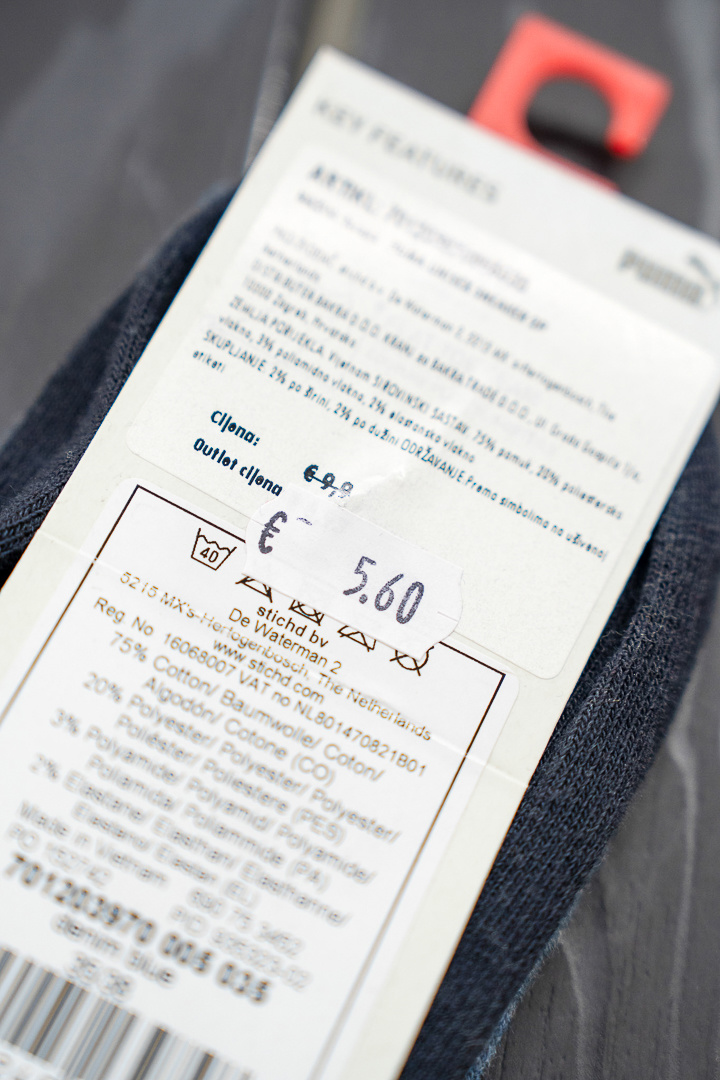 KEY FEATURES
PUMA
ARTIKL:
ZEMLJA PORIJEKLA: Vijetnam SIROVINSKI SASTAV: 75% pamuk, 20% poliestersko
vlakno, 3% poliamidno vlakno, 2% elastansko vlakno
SKUPLJANJE: 2% po širini, 2% po dužini ODRŽAVANJE:Prema simbolima na ušivenoj
etiketi
Cijena:
€ 9,9
Outlet cijena
€ 5.60
40
stichd bv
De Waterman 2
5215 MX's-Hertogenbosch, The Netherlands
www.stichd.com
Reg. No. 16068007 VAT no NL801470821B01
75% Cotton/ Baumwolle/ Coton/
Algodón/ Cotone (CO)
20% Polyester/ Polyester/ Polyester/
Poliéster/ Poliestere (PES)
3% Polyamide/ Polyamid/ Polyamide/
Poliamida/ Poliammide (PA)
2% Elastane/ Elasthan/ Elasthanne/
Elastano/ Elastan (EL)
Made in Vietnam
701203970 005 035
denim blue